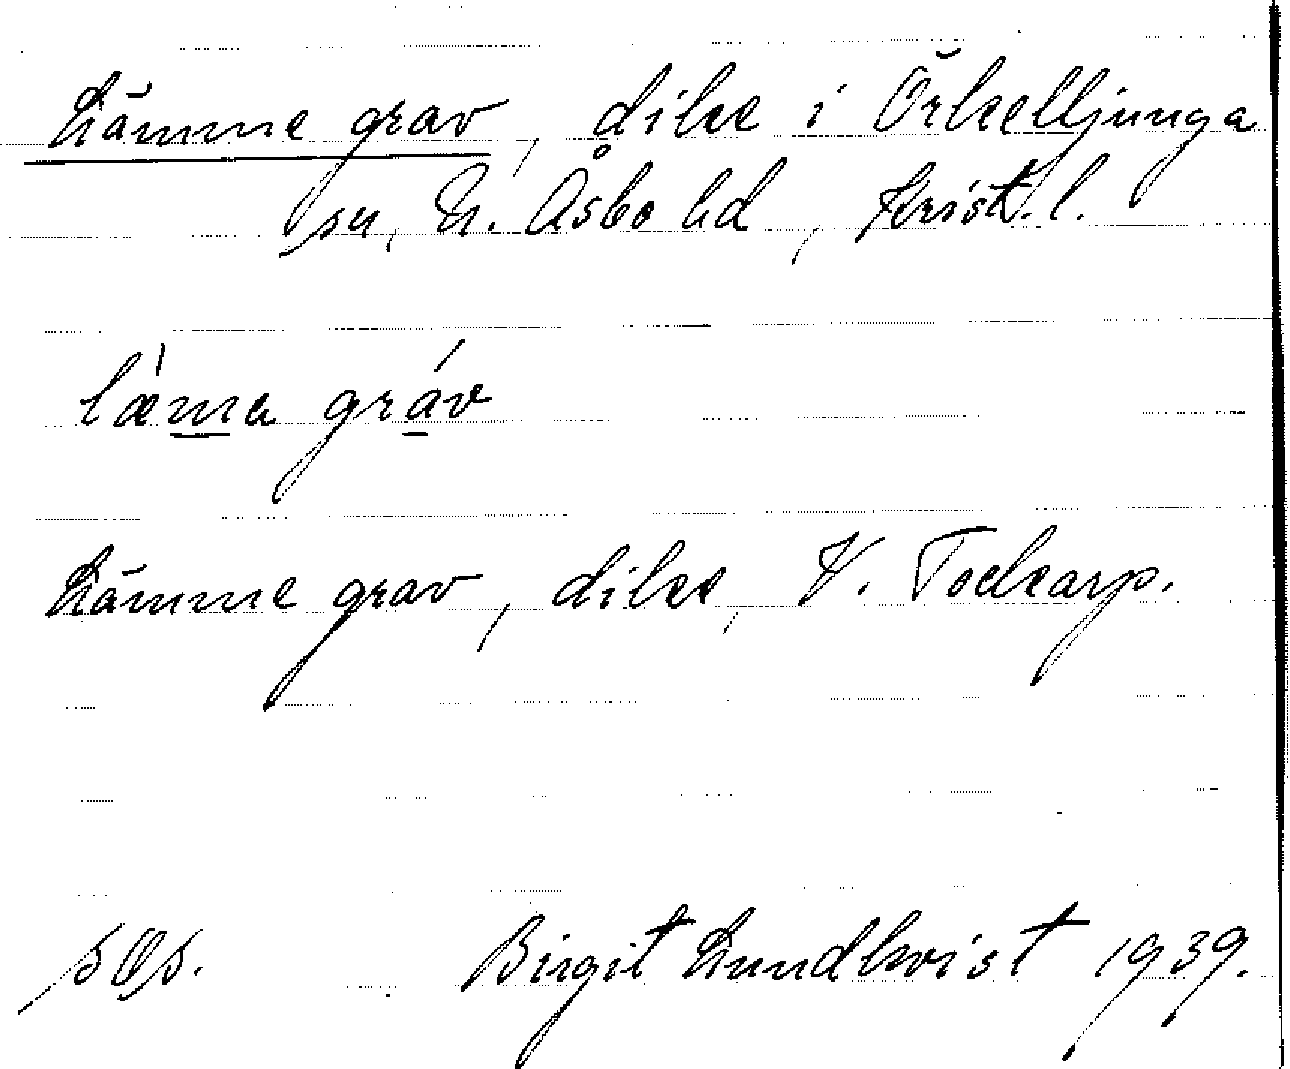 Lämme grav, dike i Örkelljunga
sn, N. Åsbo hd, Krist. l.
læma gráv
Lämme grav, dike, V. Tockarp.
Birgit Lundkvist 1939.